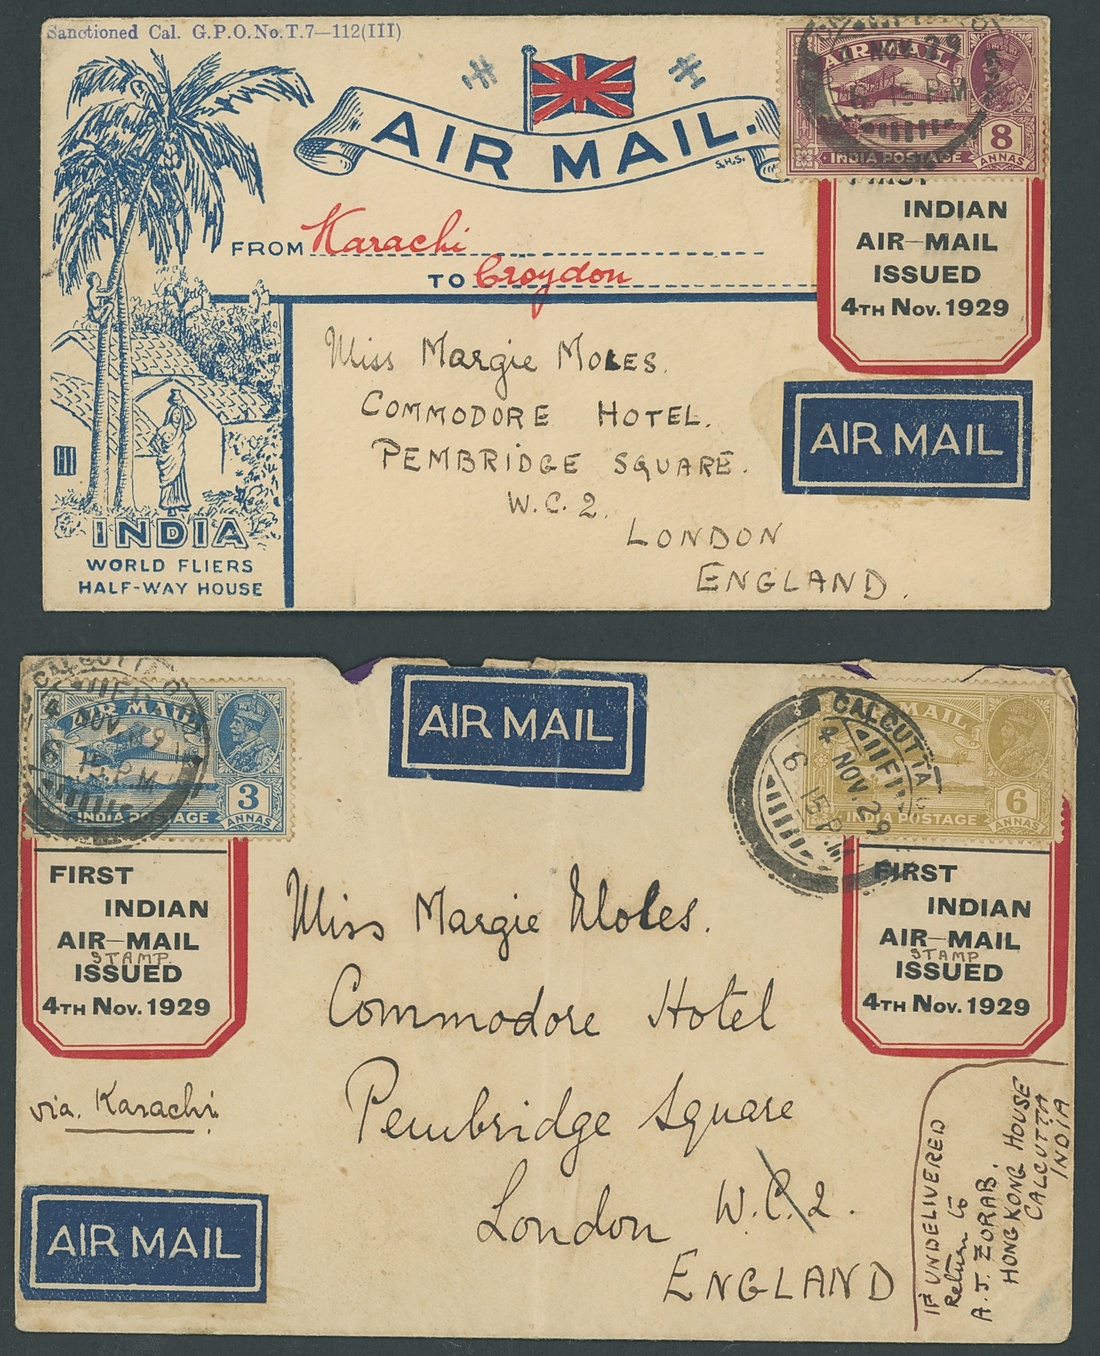 Sanctioned Cal. G.P.O. No. T.7—112(III)
AIR MAIL.
S.H.S.
FROM Karachi
TO Croydon
AIR MAIL
NOV. 29
6 15 P.M
8
INDIA POSTAGE ANNAS
FIRST
INDIAN
AIR-MAIL
ISSUED
4TH NOV. 1929
AIR MAIL
Miss Margie MOLES.
COMMODORE HOTEL.
PEMBRIDGE SQUARE.
W.C.2.
LONDON
ENGLAND.
INDIA
WORLD FLIERS
HALF-WAY HOUSE
CALCUTTA G
4 NOV. 29
6 15 P.M
AIR MAIL
3
INDIA POSTAGE ANNAS
FIRST
INDIAN
AIR-MAIL
STAMP.
ISSUED
4TH NOV. 1929
AIR MAIL
CALCUTTA
4 NOV. 29
6 15 P.M
MAIL
6
INDIA POSTAGE ANNAS
FIRST
INDIAN
AIR-MAIL
STAMP
ISSUED
4TH NOV. 1929
Miss Margie Moles.
Commodore Hotel
Pembridge Square
London W.C.2.
ENGLAND
via. Karachi.
AIR MAIL
IF UNDELIVERED
Return to
A.J. ZORAB.
HONGKONG HOUSE
CALCUTTA
INDIA